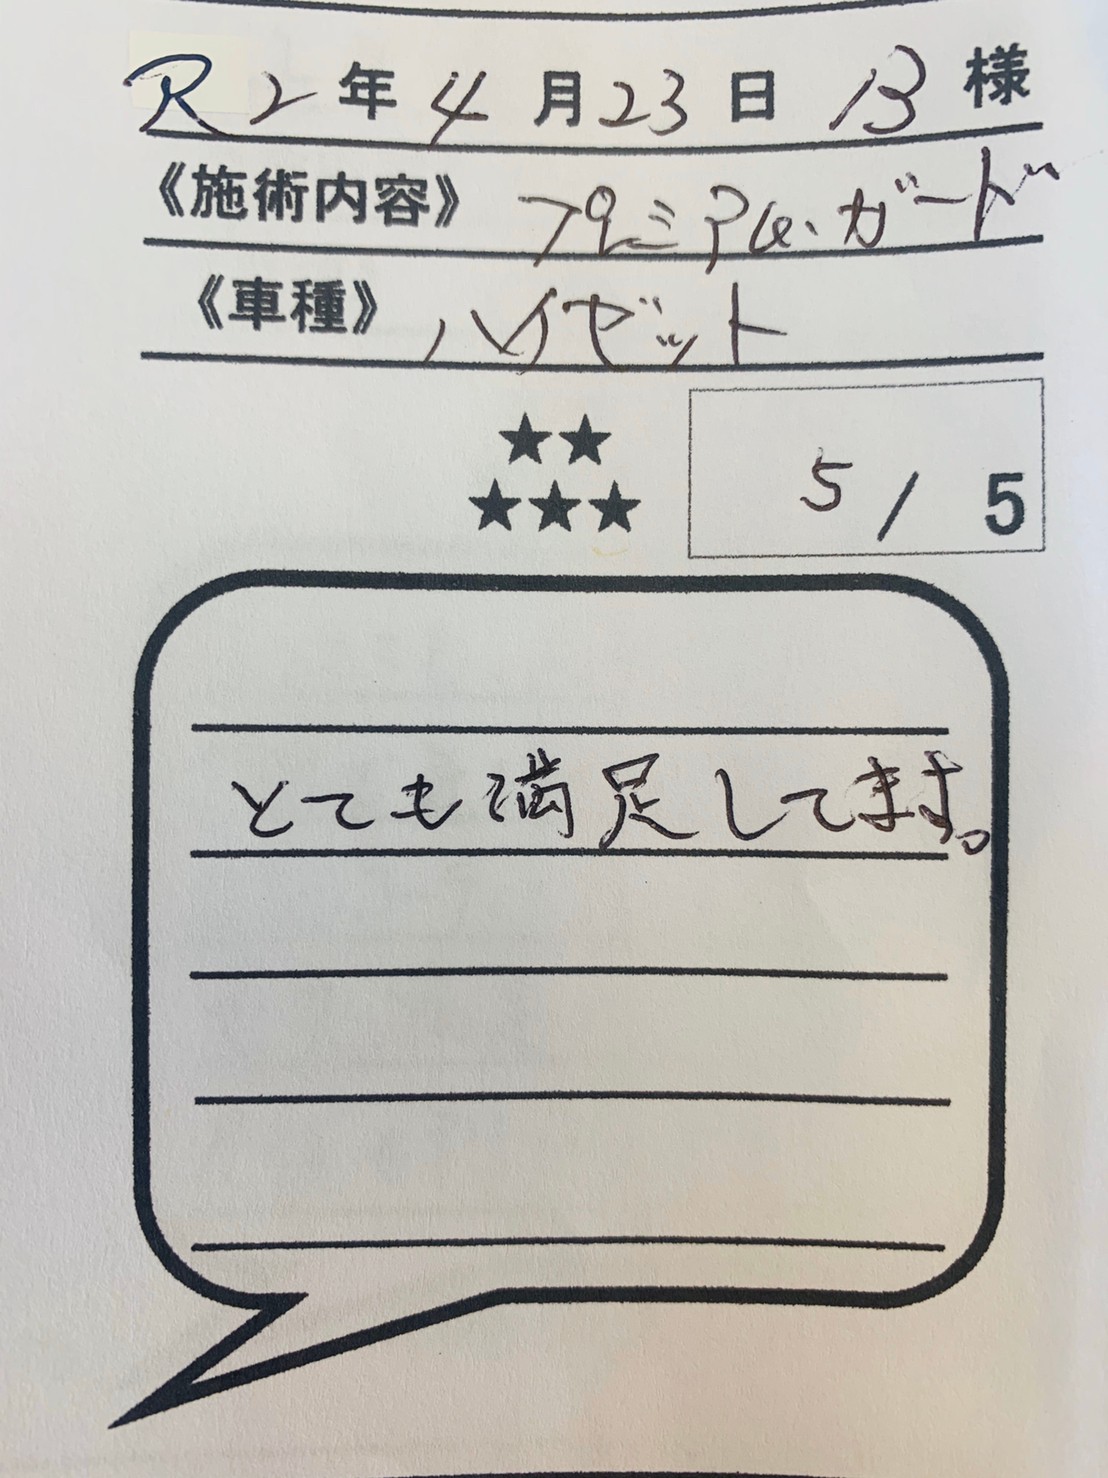 R2年4月23日 B様
《施術内容》 プレミアム・ガード
《車種》 ハイゼット
★★
★★★
5/5
とても満足してます。